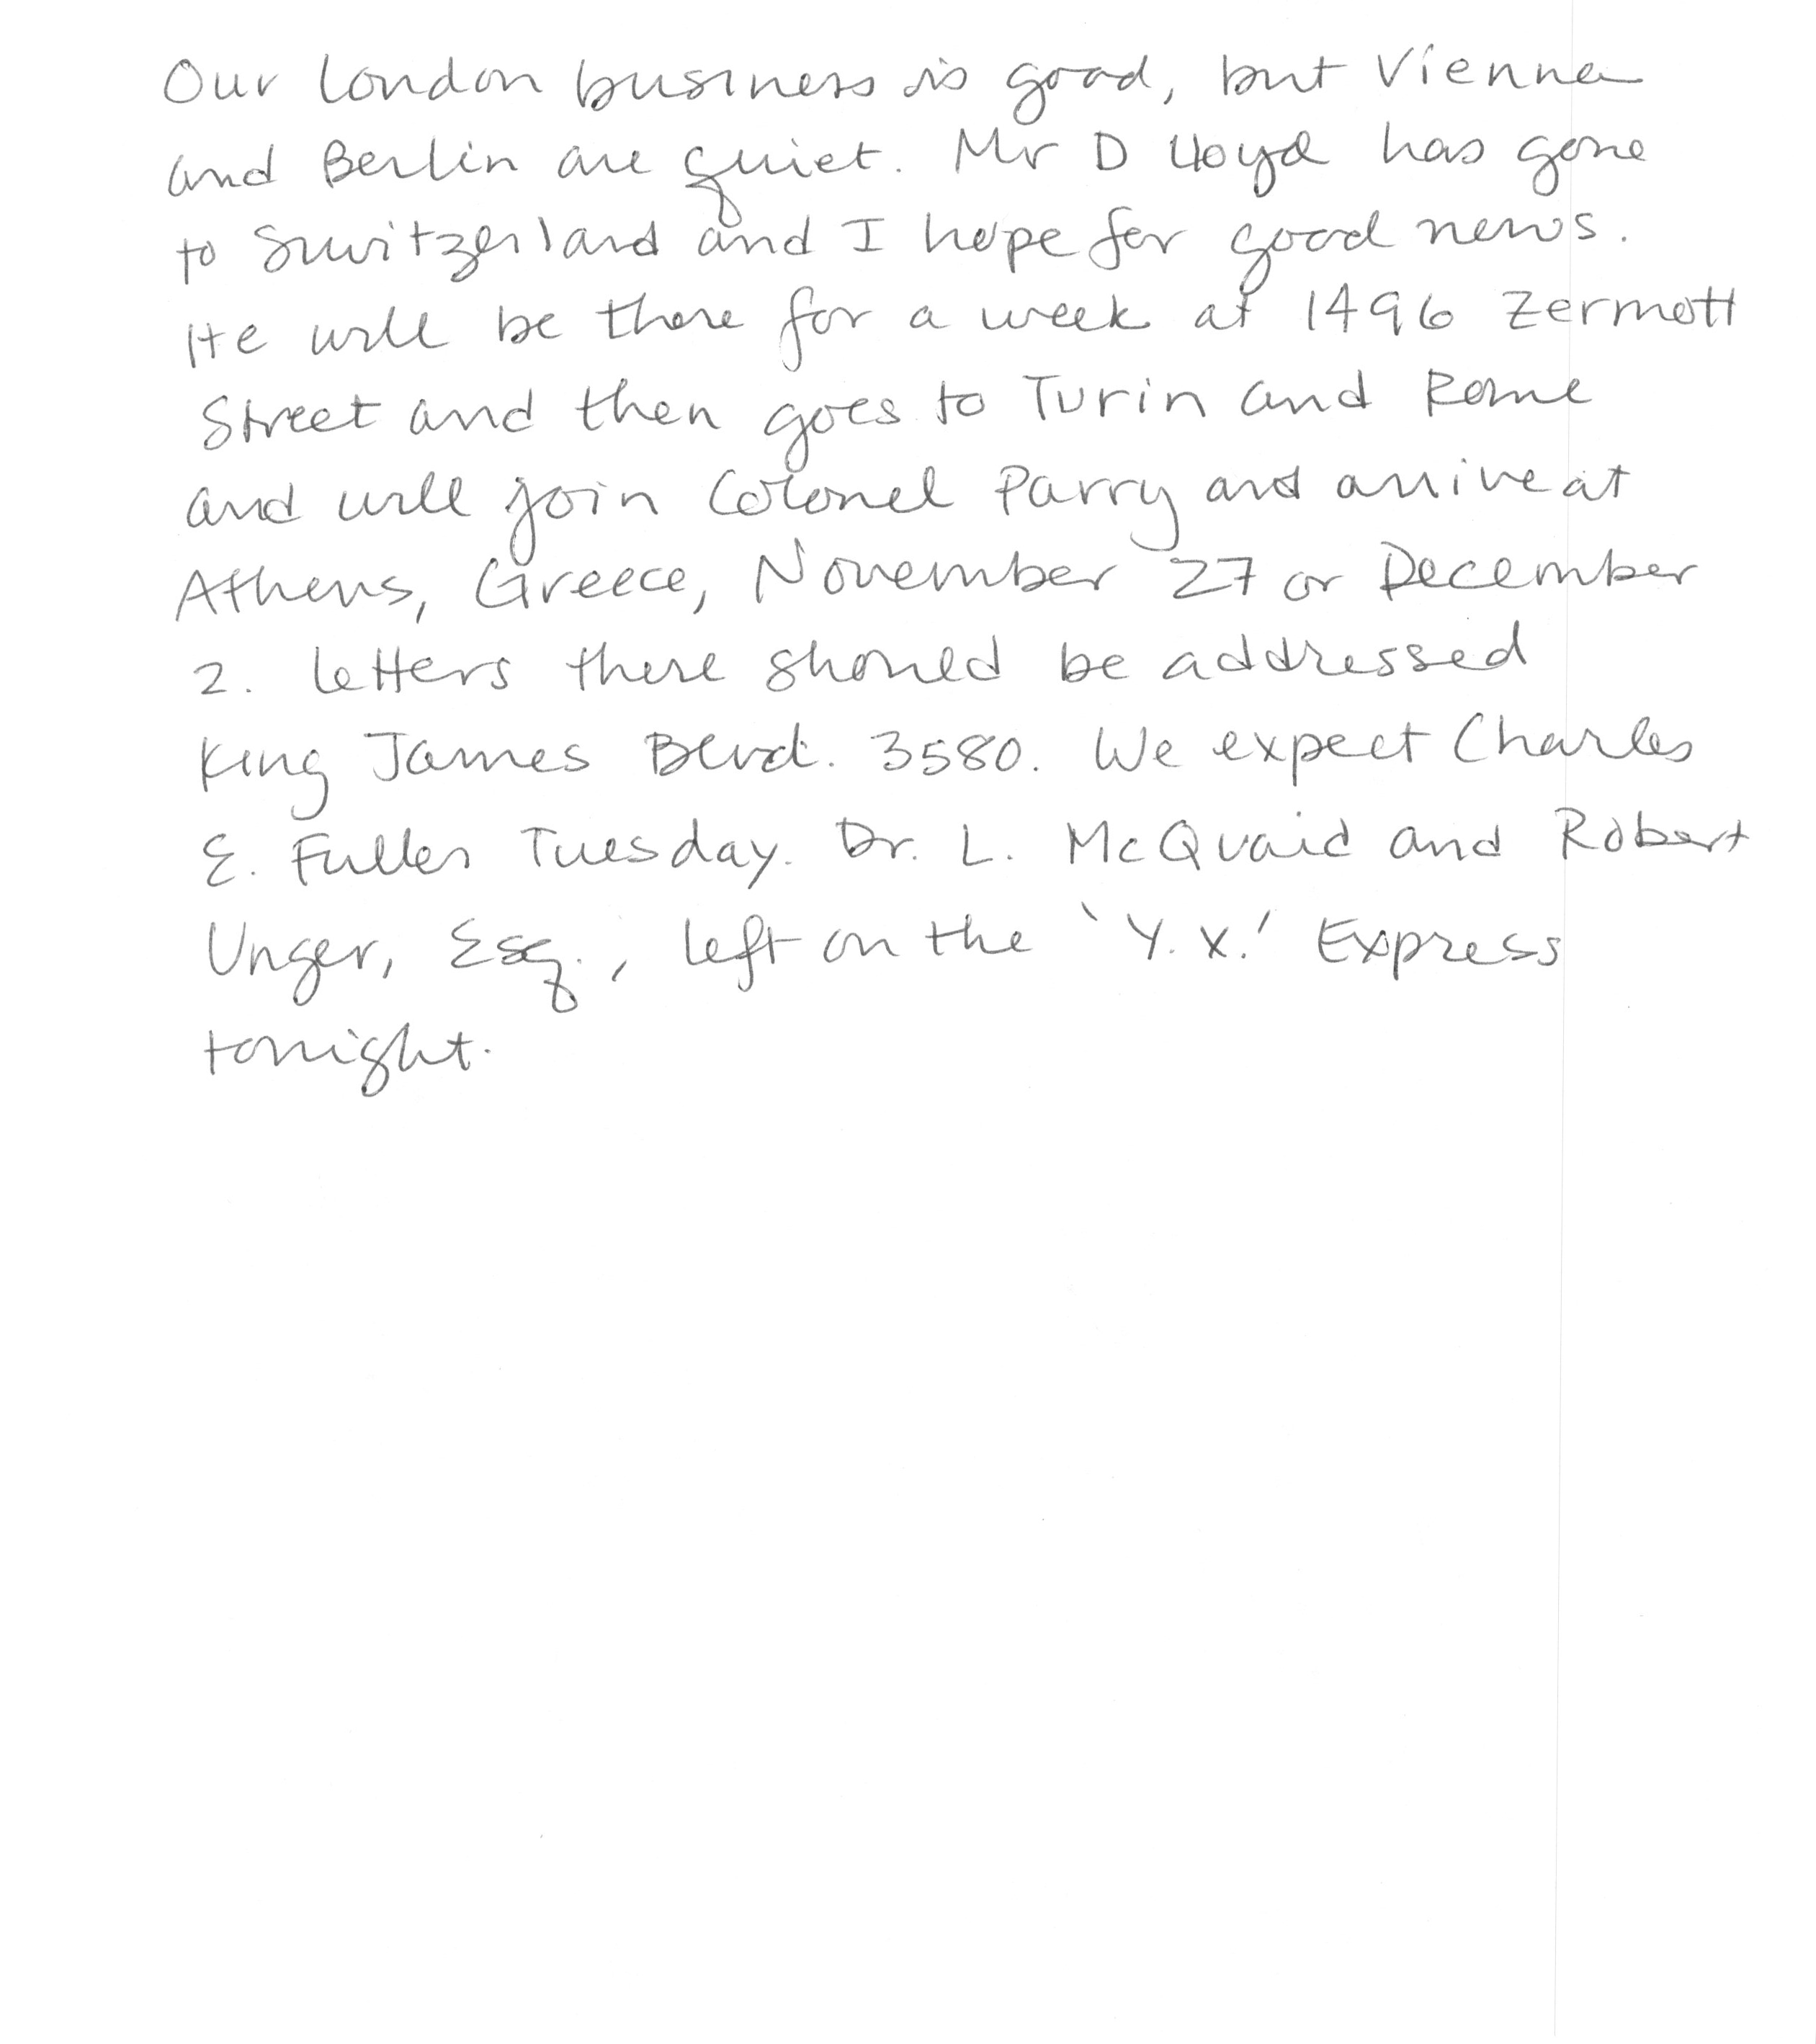 Our London business is good, but Vienna
and Berlin are quiet. Mr D Lloyd has gone
to Switzerland and I hope for good news.
He will be there for a week at 1496 Zermott
Street and then goes to Turin and Rome
and will join Colonel Parry and arrive at
Athens, Greece, November 27 or December
2. Letters there should be addressed
King James Blvd. 3580. We expect Charles
E. Fuller Tuesday. Dr. L. McQuaid and Robert
Unger, Esq., left on the 'Y.X.' Express
tonight.